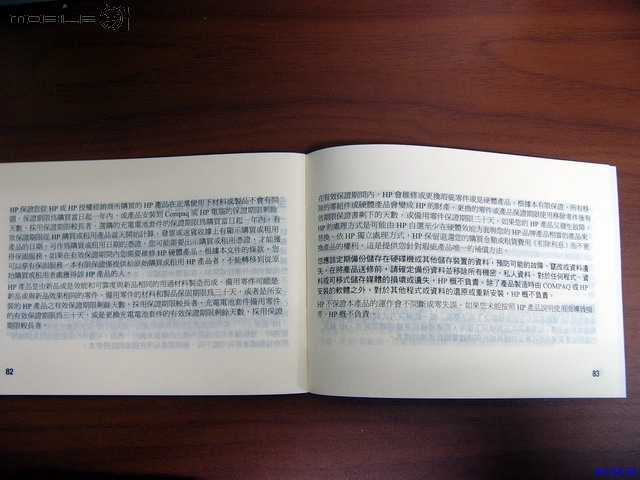 HP 保證您從 HP 或 HP 授權經銷商所購買的 HP 產品在正常使用下材料或製品不會有問
題，保證期限為購買當日起一年內，或產品安裝到 Compaq 或 HP 電腦的保證期限剩餘
天數，採用保證期限較長者。選購的充電電池套件的保證期限為購買當日起一年內。有
效保證期限從 HP 購買或租用產品當天開始計算。發票或送貨收據上有顯示購買或租用
產品的日期，可作為購買或租用日期的憑證。您可能需提出示購買或租用憑證，才能獲
得保固服務。如果在有效保證期間內您需要維修 HP 硬體產品，根據本文件的條款，您
可以享有保固服務。本有限保證僅提供給原始購買或租用 HP 產品者，不能轉移到從原
始購買或租用者或處獲得該 HP 產品的人。
HP 產品是由新品或是效能和可靠度與新品相同的用過材料製造而成。備用零件可能是
新品或與新品效果相同的零件。備用零件的材料和製品保固期限為三十天，或者是所安
裝的 HP 產品之有效保證期限剩餘天數，採用保證期限較長者。充電電池套件備用零件
的有效保證期限為三十天，或是更換充電電池套件的有效保證期限剩餘天數，採用保證
期限較長者。
82
在有效保證期間內，HP 會維修或更換瑕疵零件或是硬體產品。根據本有限保證，所有移
除的零組件或硬體產品會變成 HP 的財產。更換的零件或產品保證期限使用移除零件後有
效期限保證書剩下的天數，或備用零件保證期限三十天。如果您的 HP 產品又發生故障，
HP 的處理方式是可能由 HP 自選至少在硬體效能方面與您的 HP 產品相當的產品來
替換。依 HP 獨立處理方式，HP 保留退還您的購買金額或租賃費用（扣除利息）而不更
換產品的權利。這是提供您針對瑕疵產品唯一的補償方法。
您應該定期備份儲存在硬碟機或其他儲存裝置的資料，預防可能的故障、竄改或資料遺
失。在將產品送修前，請確定備份資料並移除所有機密、私人資料。對於任何程式、資
料或可移式儲存媒體的損壞或遺失，HP 概不負責。除了產品製造時由 COMPAQ 或 HP
安裝的軟體之外，對於其他程式或資料的還原或重新安裝，HP 概不負責。
HP 不保證本產品的運作會不間斷或零失誤。如果您未能按照 HP 產品說明使用而導致損
害，HP 概不負責。
83